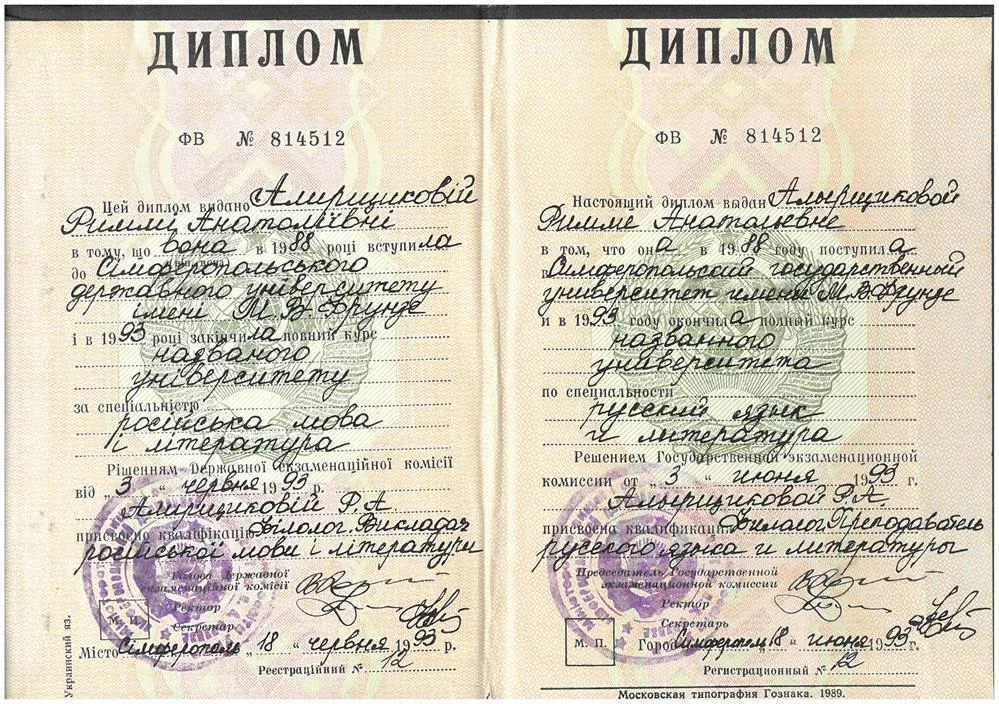 ДИПЛОМ
ФВ № 814512
Цей диплом видано Амирщиковій
Риммі Анатоліївні
в тому, що вона в 1988 році вступила
до Сімферопольського
державного університету
імені М. В. Фрунзе
і в 1993 році закінчила повний курс
названого
університету
за спеціальністю
російська мова
і література
Рішенням Державної екзаменаційної комісії
від „3“ червня 1993 р.
Амирщиковій Р. А
присвоєна кваліфікація Філолог. Викладач
російської мови і літератури
Голова Державної
екзаменаційної комісії
Ректор
М. П.
Секретар
Місто Сімферополь „18“ червня 1993 р.
Реєстраційний № 12
Украинский яз.
ДИПЛОМ
ФВ № 814512
Настоящий диплом выдан Амырщиковой
Римме Анатольевне
в том, что она в 1988 году поступила
в Симферопольский государственный
университет имени М. В. Фрунзе
и в 1993 году окончила полный курс
названного
университета
по специальности
русский язык
и литература
Решением Государственной экзаменационной
комиссии от „3“ июня 1993 г.
Амырщиковой Р. А.
присвоена квалификация Филолог. Преподаватель
русского языка и литературы
Председатель Государственной
экзаменационной комиссии
Ректор
Секретарь
М. П.
Город Симферополь „18“ июня 1993 г.
Регистрационный № 12
Московская типография Гознака. 1989.